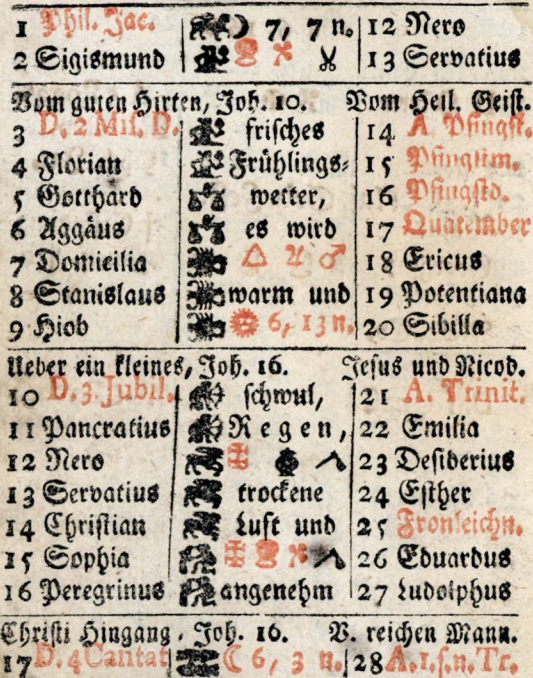 1 Phil. Jac. 7, 7 n. 12 Nero
2 Sigismund 13 Servatius
Vom guten Hirten, Joh. 10. Vom Heil. Geist.
3 D. 2 Mis. D. frisches 14 A. Pfingst.
4 Florian Frühlings= 15 Pfingstm.
5 Gotthard wetter, 16 Pfingstd.
6 Aggäus es wird 17 Quatember
7 Domicilia △ ♃ ♂ 18 Ericus
8 Stanislaus warm und 19 Potentiana
9 Hiob 6, 13 n. 20 Sibilla
Ueber ein kleines, Joh. 16. Jesus und Nicod.
10 D. 3. Jubil. schwul, 21 A. Trinit.
11 Pancratius Regen, 22 Emilia
12 Nero 23 Desiderius
13 Servatius trockene 24 Esther
14 Christian Luft und 25 Fronleichn.
15 Sophia 26 Eduardus
16 Peregrinus angenehm 27 Ludolphus
Christi Hingang. Joh. 16. V. reichen Mann.
17 D. 4 Cantat ☾ 6, 3 n. 28 A. 1. s. n. Tr.